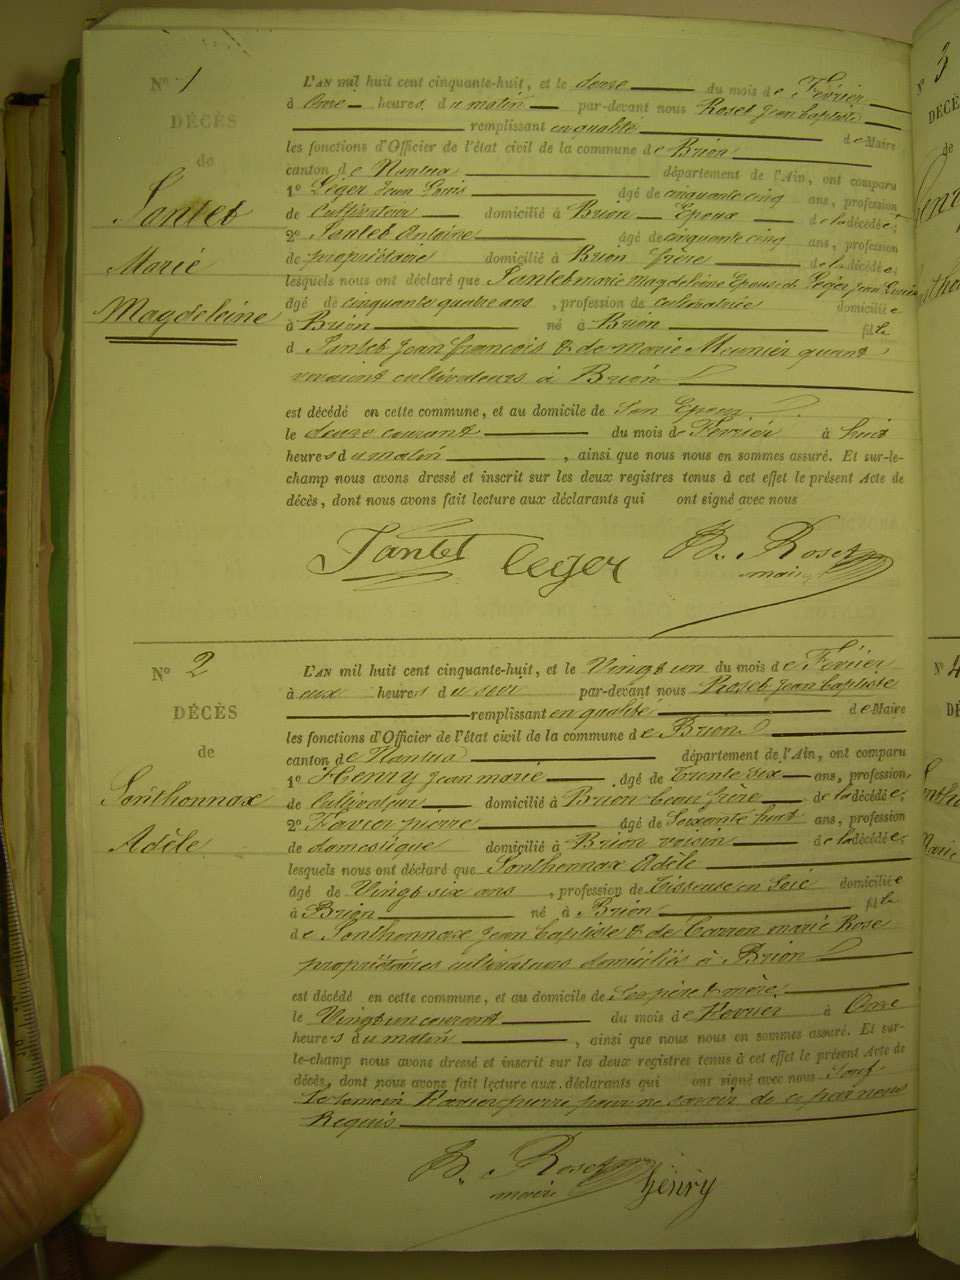 N° 1
DÉCÈS
de
Santet
Marie
Magdeleine
L'AN mil huit cent cinquante-huit, et le douze du mois de Février
à Onze heures du matin par-devant nous Roset Jean baptiste
remplissant en qualité de Maire
les fonctions d'Officier de l'état civil de la commune de Brion
canton de Nantua département de l'Ain, ont comparu
1° Léger Jean Louis âgé de cinquante cinq ans, profession
de Cultivateur domicilié à Brion Epoux de la décédée;
2° Santet Antoine âgé de cinquante cinq ans, profession
de propriétaire domicilié à Brion frère de la décédée;
lesquels nous ont déclaré que Santet marie Magdeleine Epouse de Léger Jean Louis
âgé de cinquante quatre ans, profession de cultivatrice domiciliée
à Brion né à Brion fille
d Santet Jean françois & de Marie Meunier quand
vivaient cultivateurs à Brion
est décédé en cette commune, et au domicile de Son Epoux
le douze courant du mois de Février à huit
heures du matin, ainsi que nous nous en sommes assuré. Et sur-le-
champ nous avons dressé et inscrit sur les deux registres tenus à cet effet le présent Acte de
décès, dont nous avons fait lecture aux déclarants qui ont signé avec nous
Santet leger B. Roset
maire
N° 2
DÉCÈS
de
Sonthonnax
Adèle
L'AN mil huit cent cinquante-huit, et le Vingt un du mois de Février
à heures du soir par-devant nous Roset Jean baptiste
remplissant en qualité de Maire
les fonctions d'Officier de l'état civil de la commune de Brion
canton de Nantua département de l'Ain, ont comparu
1° Henry Jean marie, âgé de Trente six ans, profession
de Cultivateur domicilié à Brion beau frère de la décédée;
2° Favier pierre âgé de Soixante huit ans, profession
de domestique domicilié à Brion voisin de la décédée;
lesquels nous ont déclaré que Sonthonnax Adèle
âgé de Vingt six ans, profession de Tisseuse en Soie domiciliée
à Brion né à Brion fille
de Sonthonnax Jean baptiste & de Carron marie Rose
propriétaires cultivateurs domiciliés à Brion
est décédé en cette commune, et au domicile de Ses père & mère
le Vingt un courant du mois de Février à Onze
heures du matin, ainsi que nous nous en sommes assuré. Et sur-
le-champ nous avons dressé et inscrit sur les deux registres tenus à cet effet le présent Acte de
décès, dont nous avons fait lecture aux déclarants qui ont signé avec nous Sauf
Le temoin Favier pierre pour ne savoir de ce par nous
Requis
B. Roset henry
maire
N° 3
DÉCÈS
de
N° 4